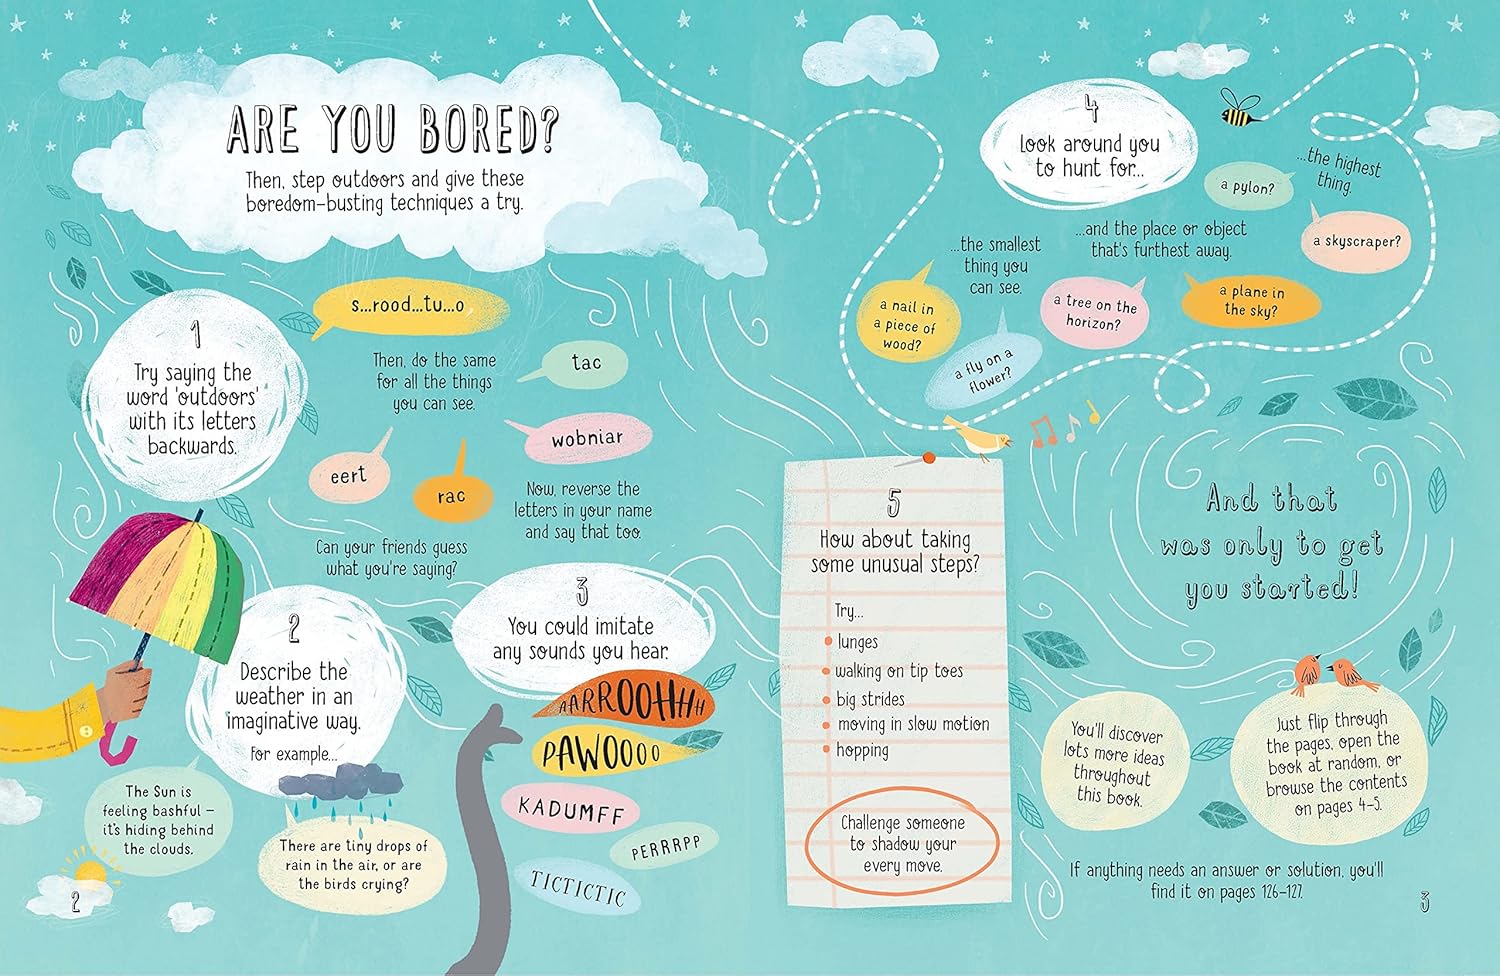 ARE YOU BORED?
Then, step outdoors and give these
boredom-busting techniques a try.
1
Try saying the
word 'outdoors'
with its letters
backwards.
s...rood...tu...o
Then, do the same
for all the things
you can see.
tac
wobniar
eert
rac
Now, reverse the
letters in your name
and say that too.
Can your friends guess
what you're saying?
2
Describe the
weather in an
imaginative way.
For example...
The Sun is
feeling bashful –
it's hiding behind
the clouds.
There are tiny drops of
rain in the air, or are
the birds crying?
3
You could imitate
any sounds you hear.
AARROOHHH
PAWOOOO
KADUMFF
PERRRPP
TICTICTIC
2
4
Look around you
to hunt for...
...the highest
thing.
a pylon?
a skyscraper?
...and the place or object
that's furthest away.
a tree on the
horizon?
a plane in
the sky?
...the smallest
thing you
can see.
a nail in
a piece of
wood?
a fly on a
flower?
5
How about taking
some unusual steps?
Try...
lunges
walking on tip toes
big strides
moving in slow motion
hopping
Challenge someone
to shadow your
every move.
And that
was only to get
you started!
You'll discover
lots more ideas
throughout
this book.
Just flip through
the pages, open the
book at random, or
browse the contents
on pages 4–5.
If anything needs an answer or solution, you'll
find it on pages 126–127.
3